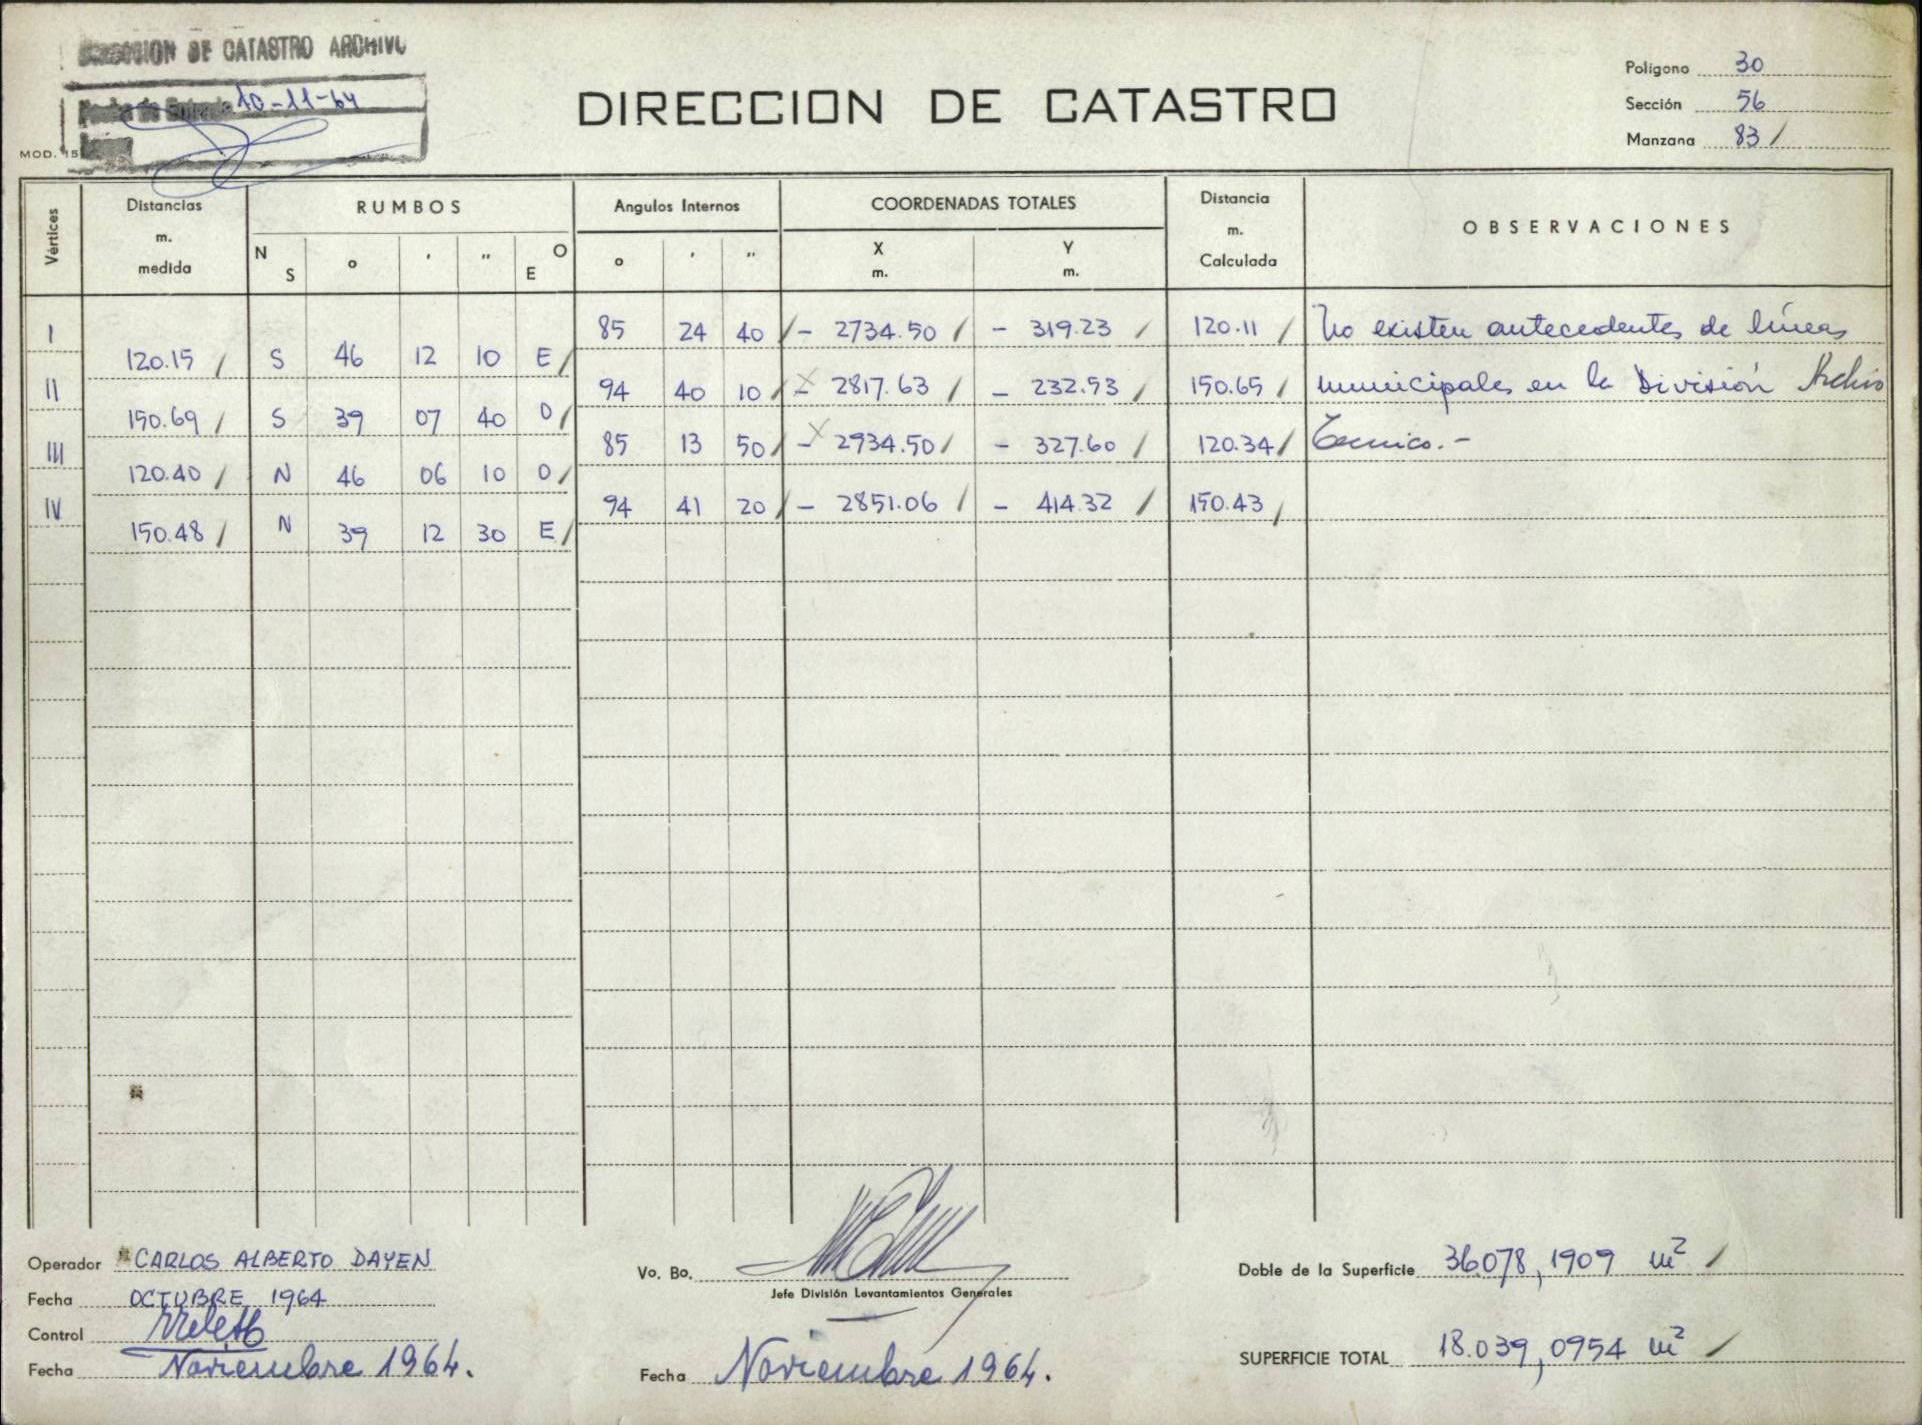 DIRECCION DE CATASTRO ARCHIVO
Fecha de Entrada 10-11-64
MOD. 15
DIRECCION DE CATASTRO
Polígono 30
Sección 56
Manzana 83 /
Vértices
Distancias m. medida
RUMBOS
N S ° ' " O E
Angulos Internos
° ' "
COORDENADAS TOTALES
X m. Y m.
Distancia m. Calculada
OBSERVACIONES
I 85 24 40 / - 2734.50 / - 319.23 / 120.11 / No existen antecedentes de líneas
120.15 / S 46 12 10 E /
II 94 40 10 / - 2817.63 / - 232.53 / 150.65 / municipales en la División Archivo
150.69 / S 39 07 40 O /
III 85 13 50 / - 2934.50 / - 327.60 / 120.34 / Tecnico.-
120.40 / N 46 06 10 O /
IV 94 41 20 / - 2851.06 / - 414.32 / 150.43 /
150.48 / N 39 12 30 E /
Operador CARLOS ALBERTO DAYEN
Fecha OCTUBRE 1964
Control
Fecha Noviembre 1964.
Vo. Bo.
Jefe División Levantamientos Generales
Fecha Noviembre 1964.
Doble de la Superficie 36.078,1909 m² /
SUPERFICIE TOTAL 18.039,0954 m² /